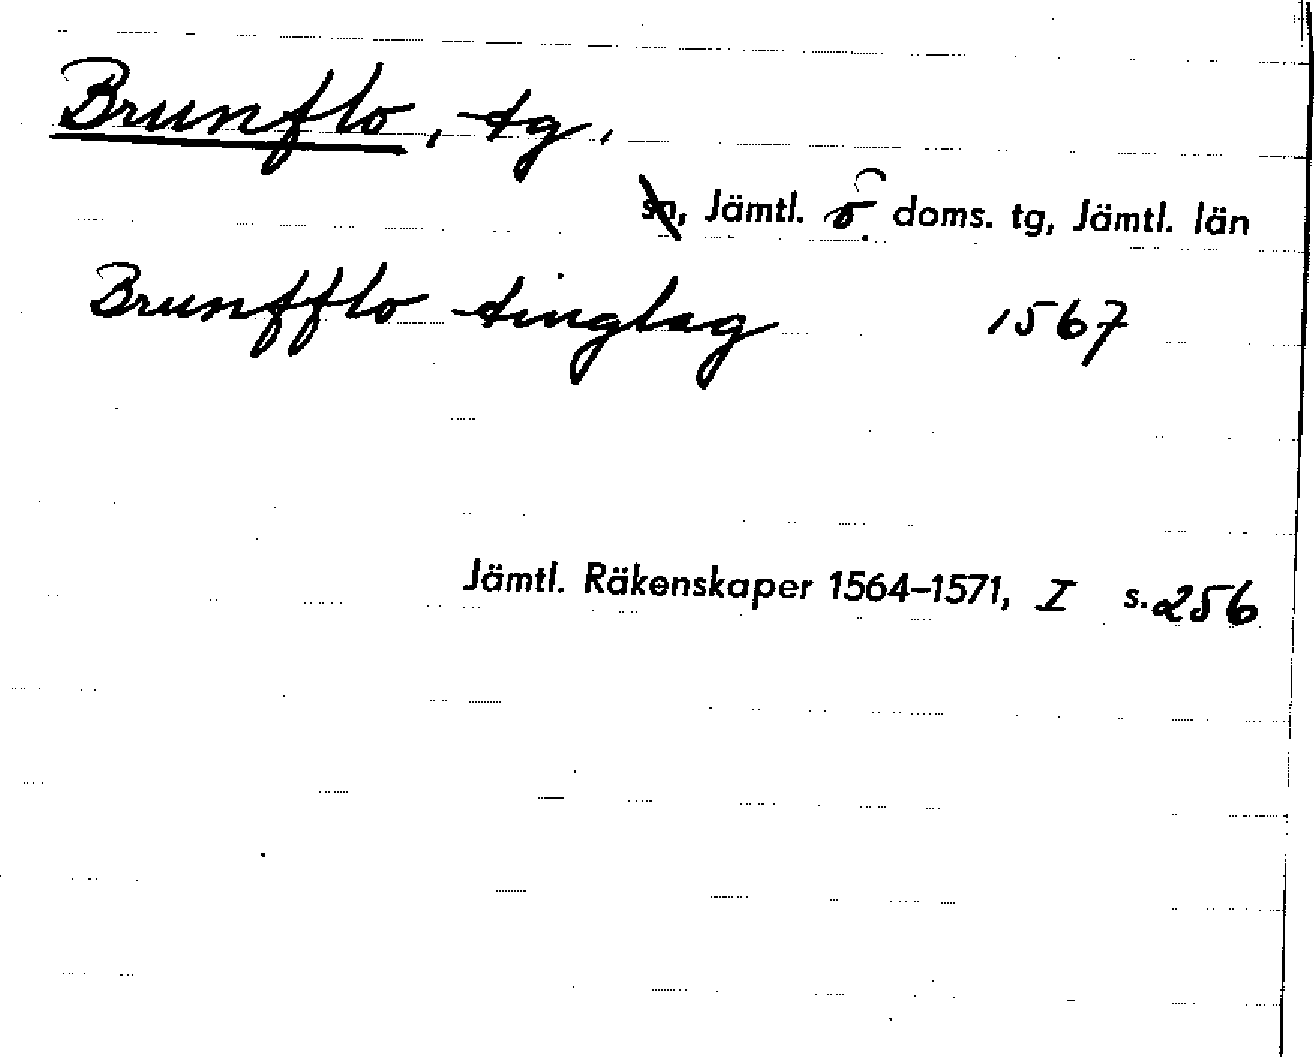 Brunflo, tg.
sn, Jämtl. ö. doms. tg, Jämtl. län
Brunfflo tinglag 1567
Jämtl. Räkenskaper 1564–1571, I s. 256